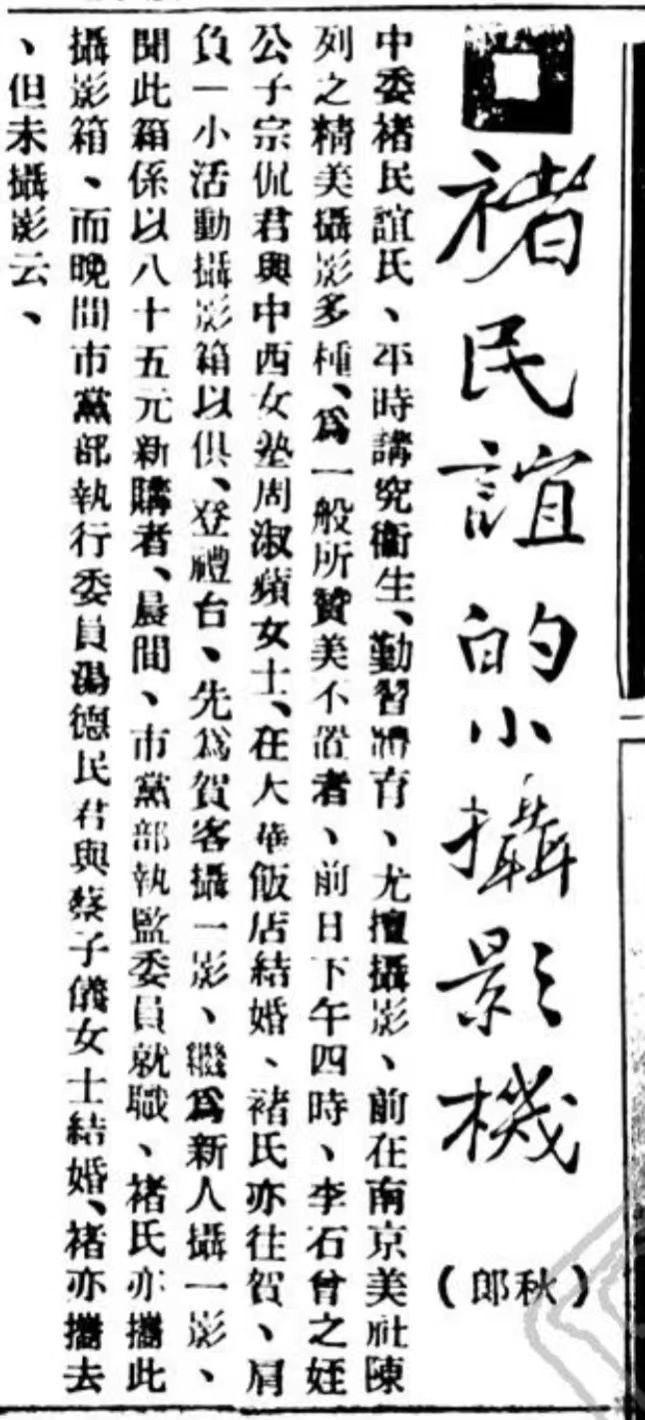 褚民誼的小攝影機
（秋郎）
中委褚民誼氏、平時講究衞生、勤習體育、尤擅攝影、前在南京美社陳
列之精美攝影多種、爲一般所贊美不置者、前日下午四時、李石曾之姪
公子宗侃君與中西女塾周淑蘋女士、在大華飯店結婚、褚氏亦往賀、肩
負一小活動攝影箱以俱、登禮台、先爲賀客攝一影、繼爲新人攝一影、
聞此箱係以八十五元新購者、晨間、市黨部執監委員就職、褚氏亦攜此
攝影箱、而晚間市黨部執行委員湯德民君與蔡子儀女士結婚、褚亦攜去
、但未攝影云、
二